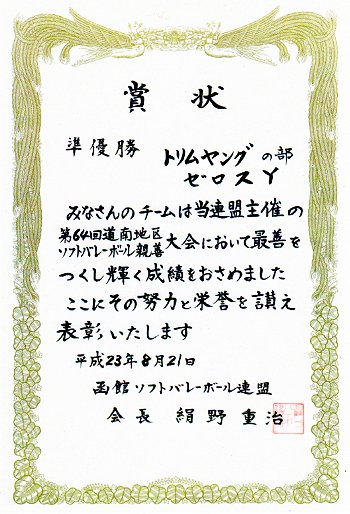 賞状
準優勝 トリムヤングの部
ゼロスY
みなさんのチームは当連盟主催の
第64回道南地区
ソフトバレーボール親善
大会において最善を
つくし輝く成績をおさめました
ここにその努力と栄誉を讃え
表彰いたします
平成23年8月21日
函館ソフトバレーボール連盟
会長 絹野重治